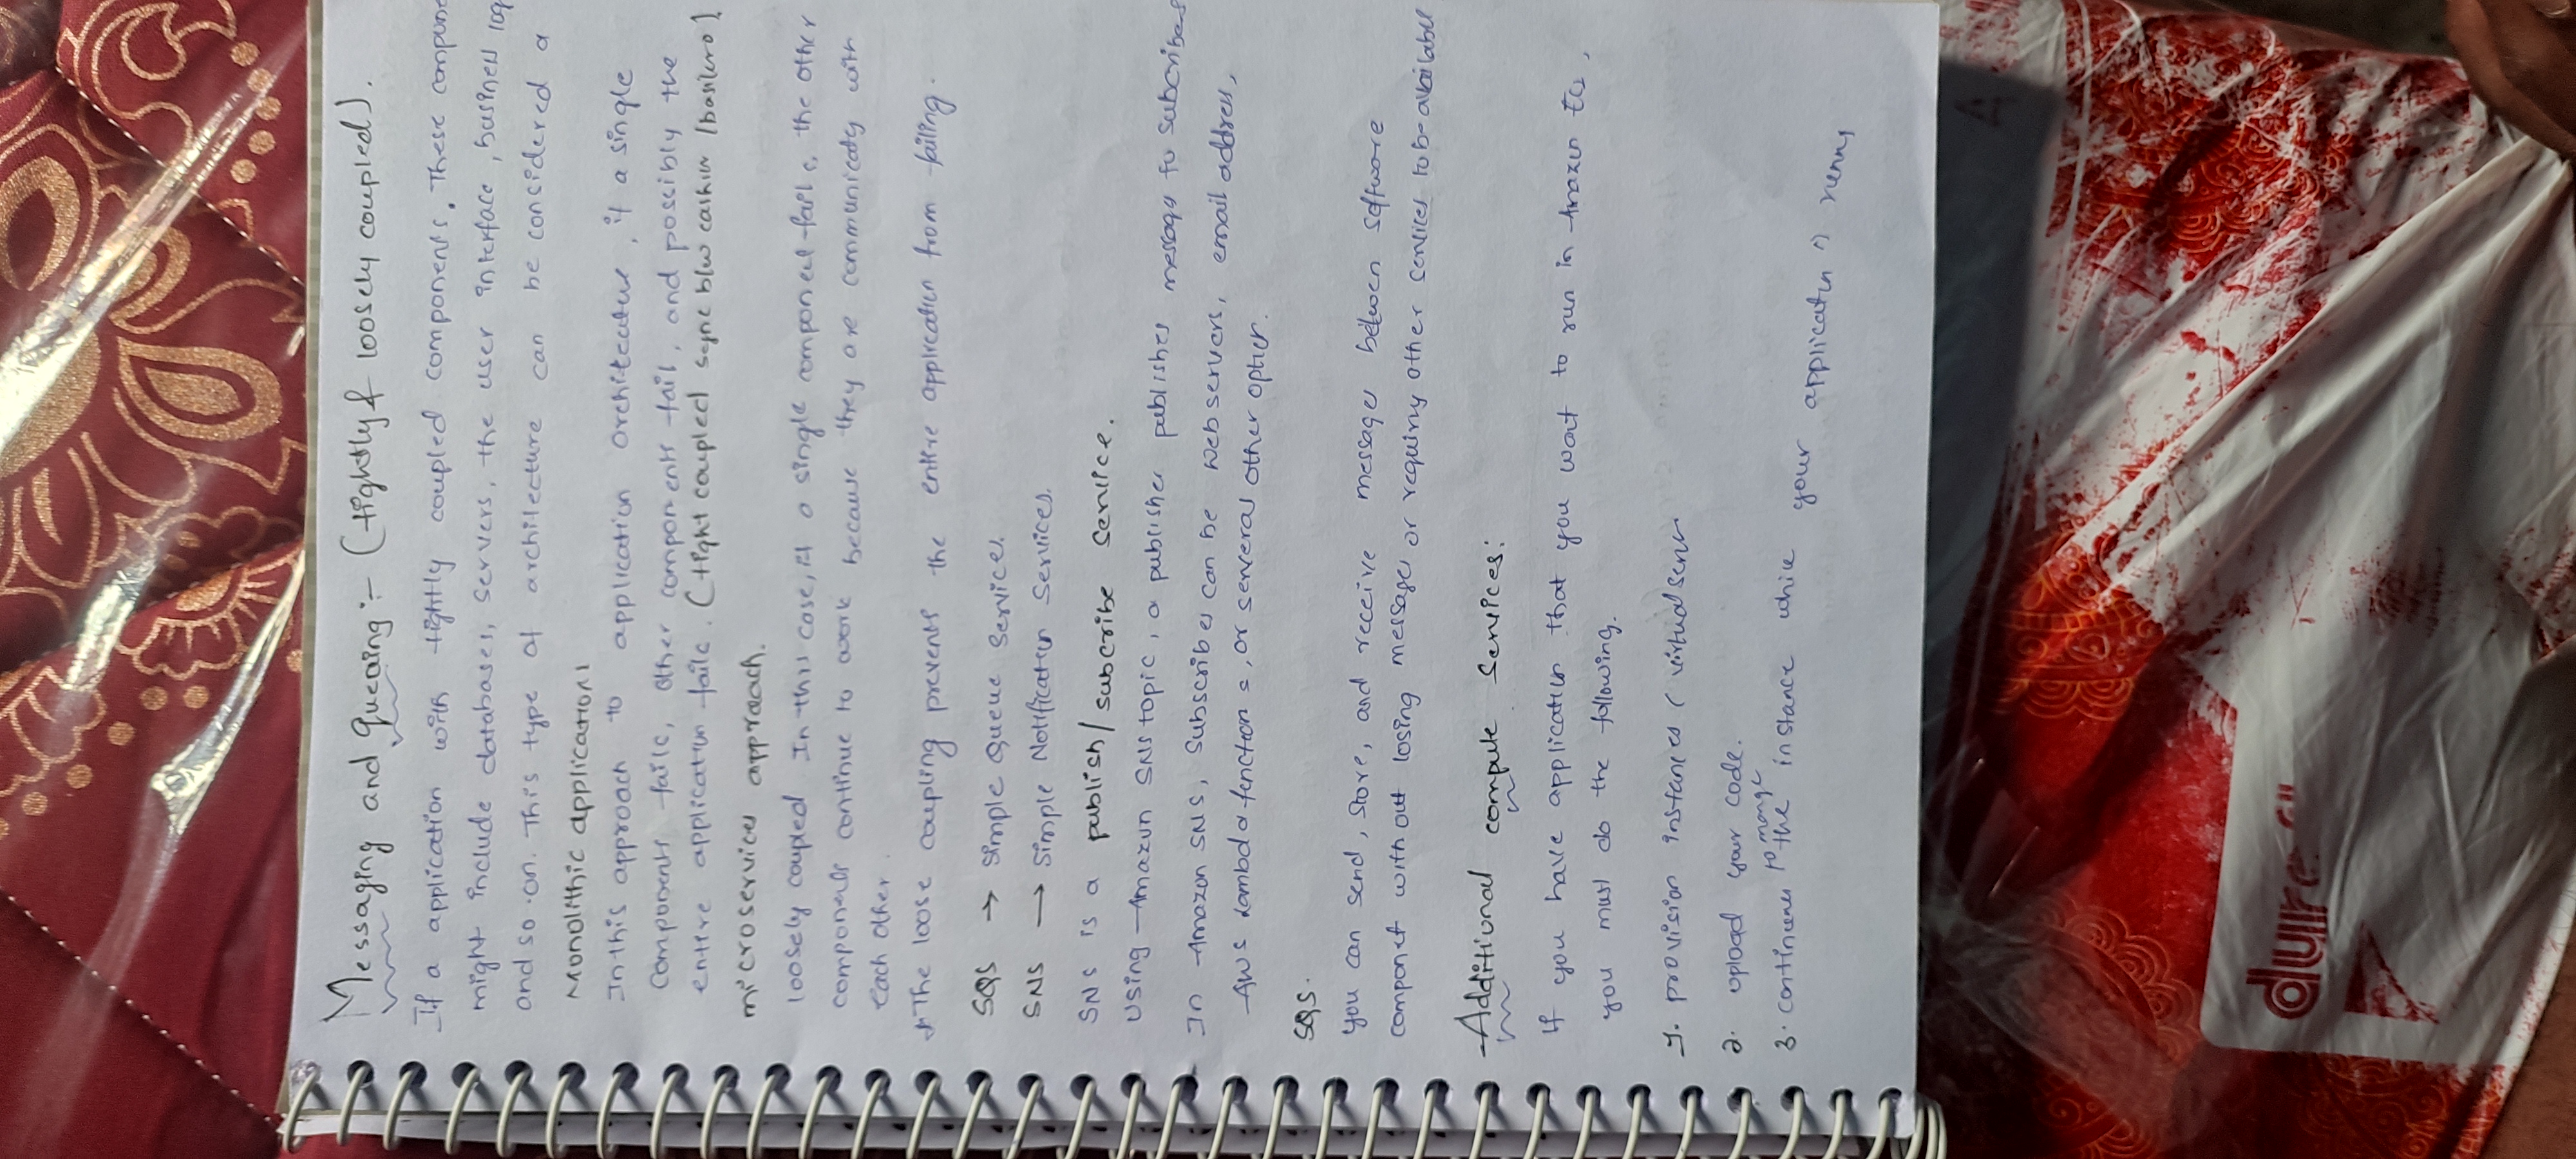 Messaging and queuing :- (tightly & loosely coupled).
If a application with tightly coupled components. These compone
might include databases, servers, the user interface, business log
and so on. This type of architecture can be considered a
Monolithic application
In this approach to application architecture, if a single
components fails, other components fail, and possibly the
entire application fails. (tight coupled sync b/w cashier /
microservices approach.
loosely coupled In this case, if a single component fails, the other
components continue to work because they are communicatg with
each other.
The loose coupling prevents the entire application from failing.
SQS → Simple Queue Services.
SNS → Simple Notification Services.
SNS is a publish/subcribe service.
Using Amazon SNS topic, a publisher publishes message to subcribers
In Amazon SNS, Subscribes can be web servers, email address,
AWS Lambda fenctions, or serveral other option.
SQS.
you can send, store, and receive messages between software
componet with out losing messages or requiring other services to be available
Additional compute Services:
If you have application that you want to run in Amazon
you must do the following.
1. provision instances ( virtual
2. upload your code.
to mange
3. the instance while your application